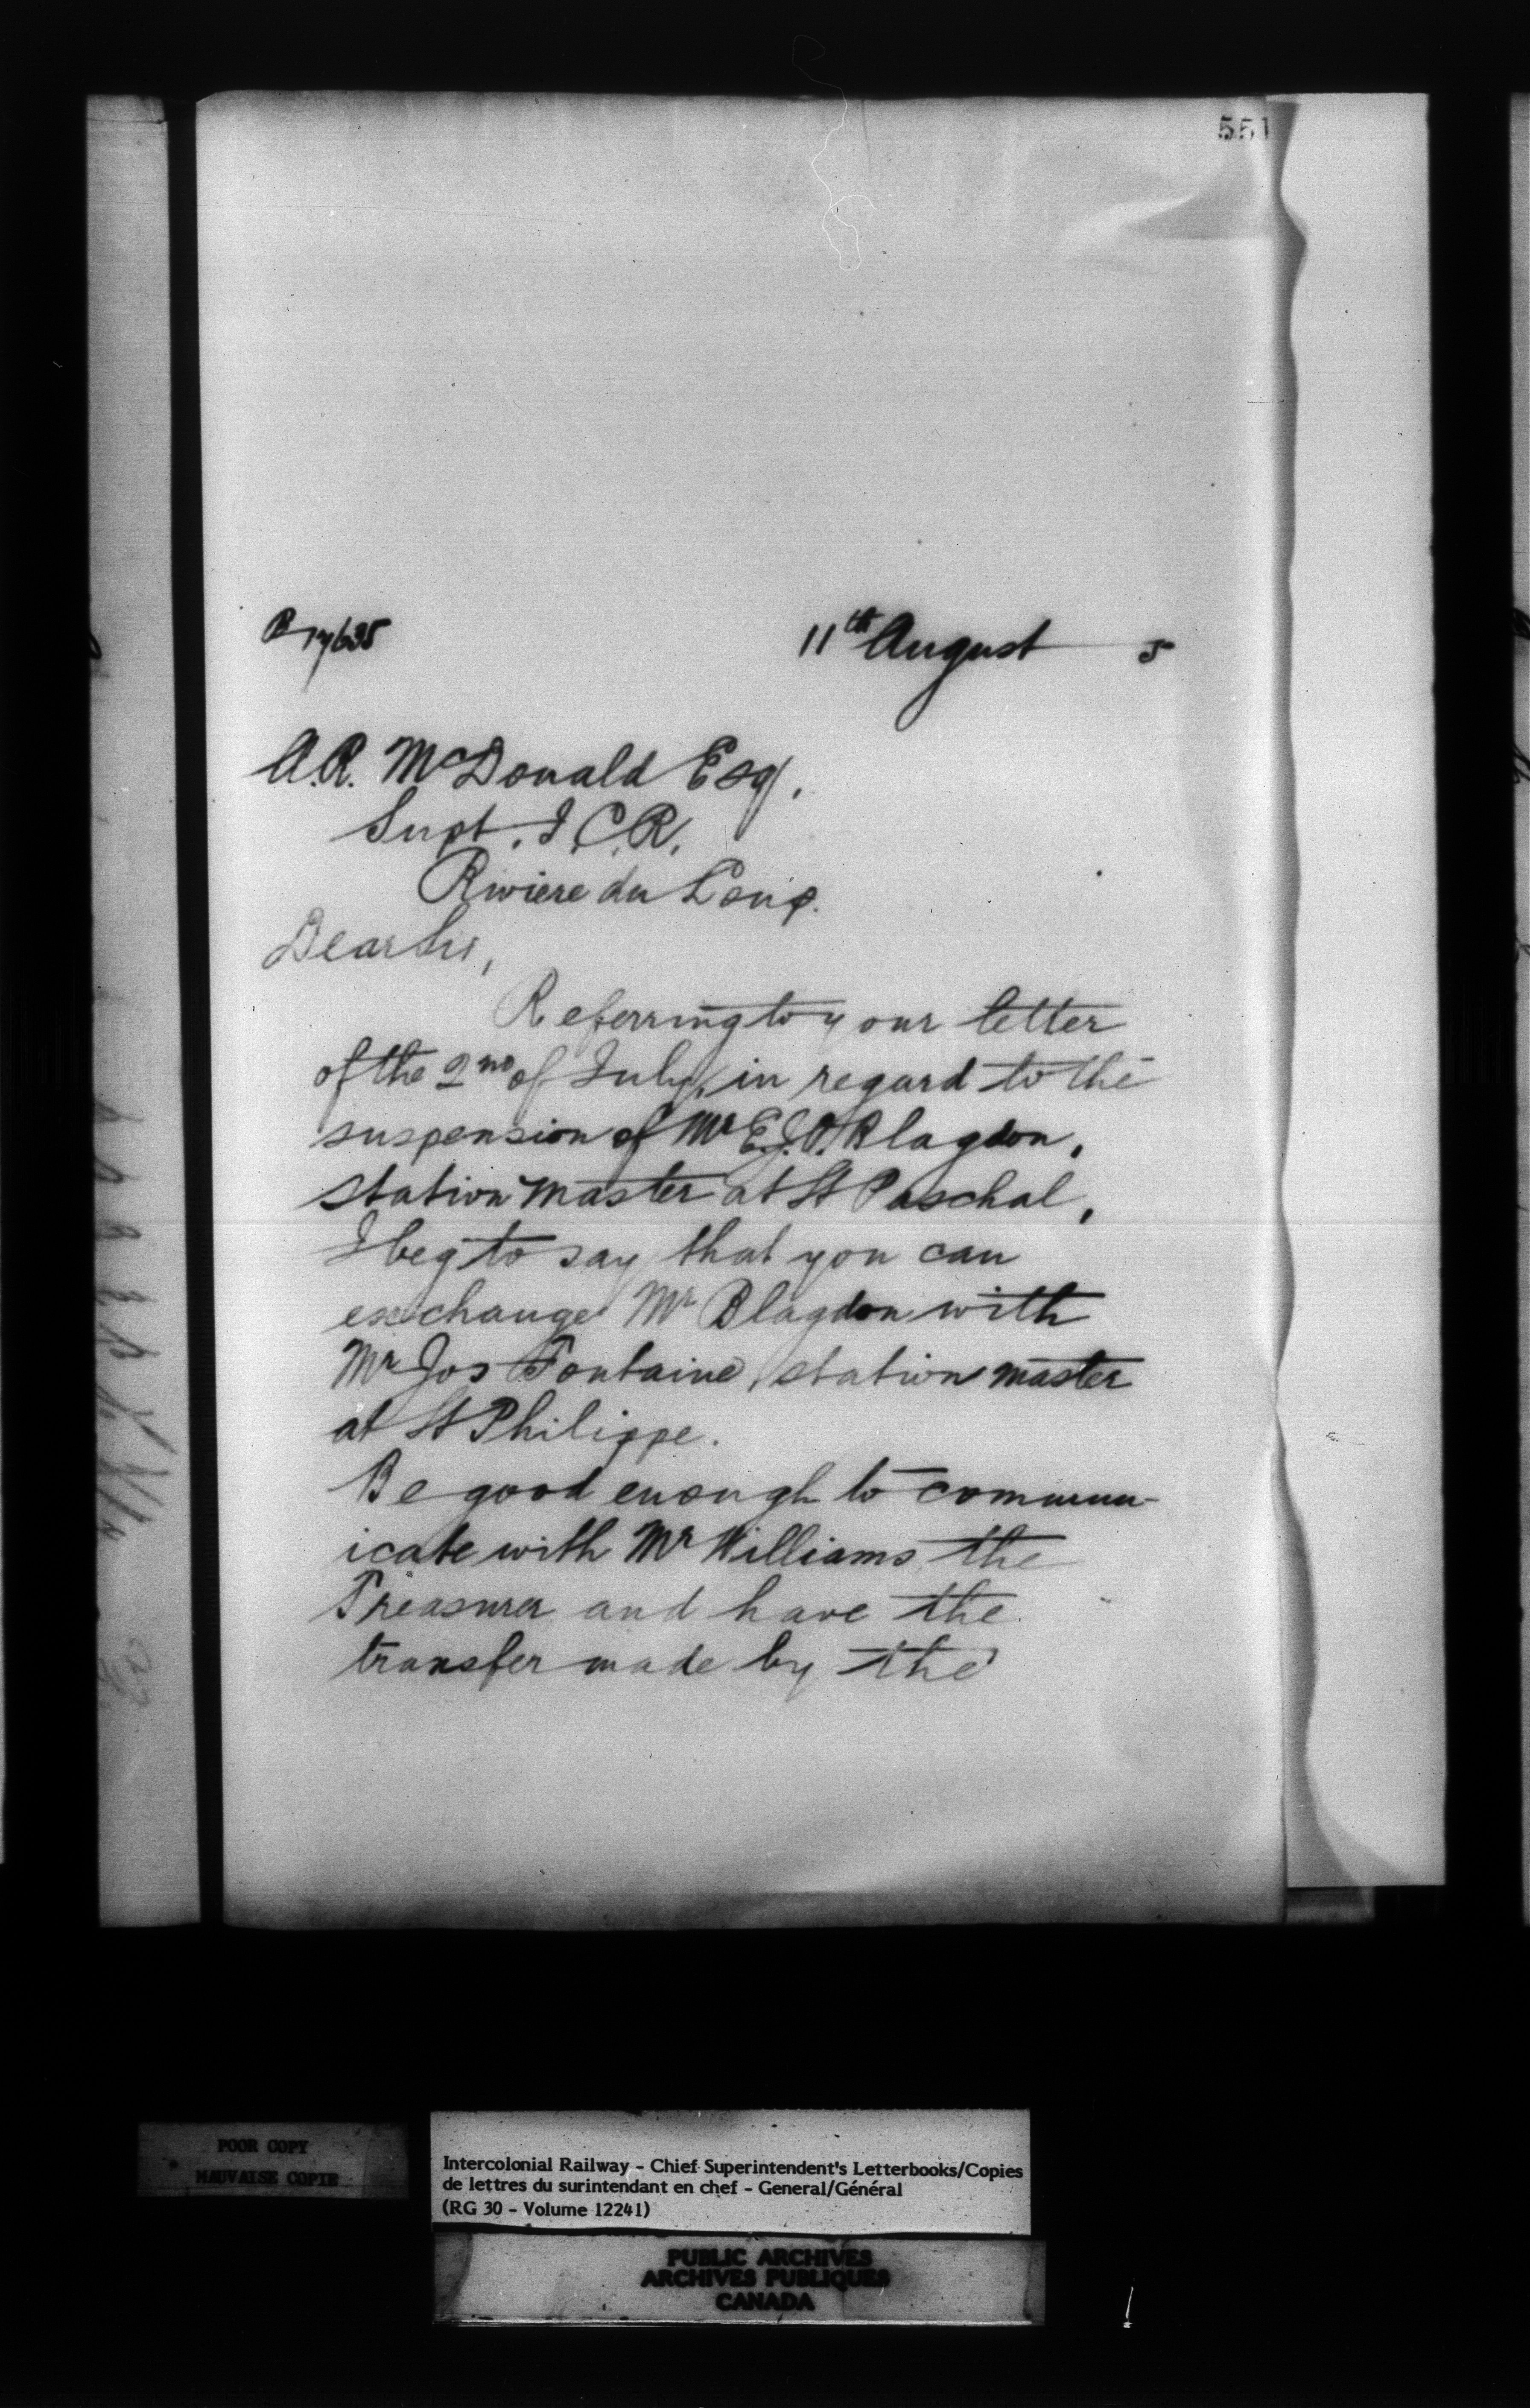 551
11th August 5
A.R. McDonald Esq,
Supt. I.C.R.
Riviere du Loup.
Dear Sir,
Referring to your letter
of the 2nd of July, in regard to the
suspension of Mr E.J.O. Blagdon,
station master at St Paschal,
I beg to say that you can
exchange Mr Blagdon with
Mr Jos Fontaine, station master
at St Philippe.
Be good enough to commun-
icate with Mr Williams the
Treasurer and have the
transfer made by the
POOR COPY
MAUVAISE COPIE
Intercolonial Railway - Chief Superintendent's Letterbooks/Copies
de lettres du surintendant en chef - General/Général
(RG 30 - Volume 12241)
PUBLIC ARCHIVES
ARCHIVES PUBLIQUES
CANADA